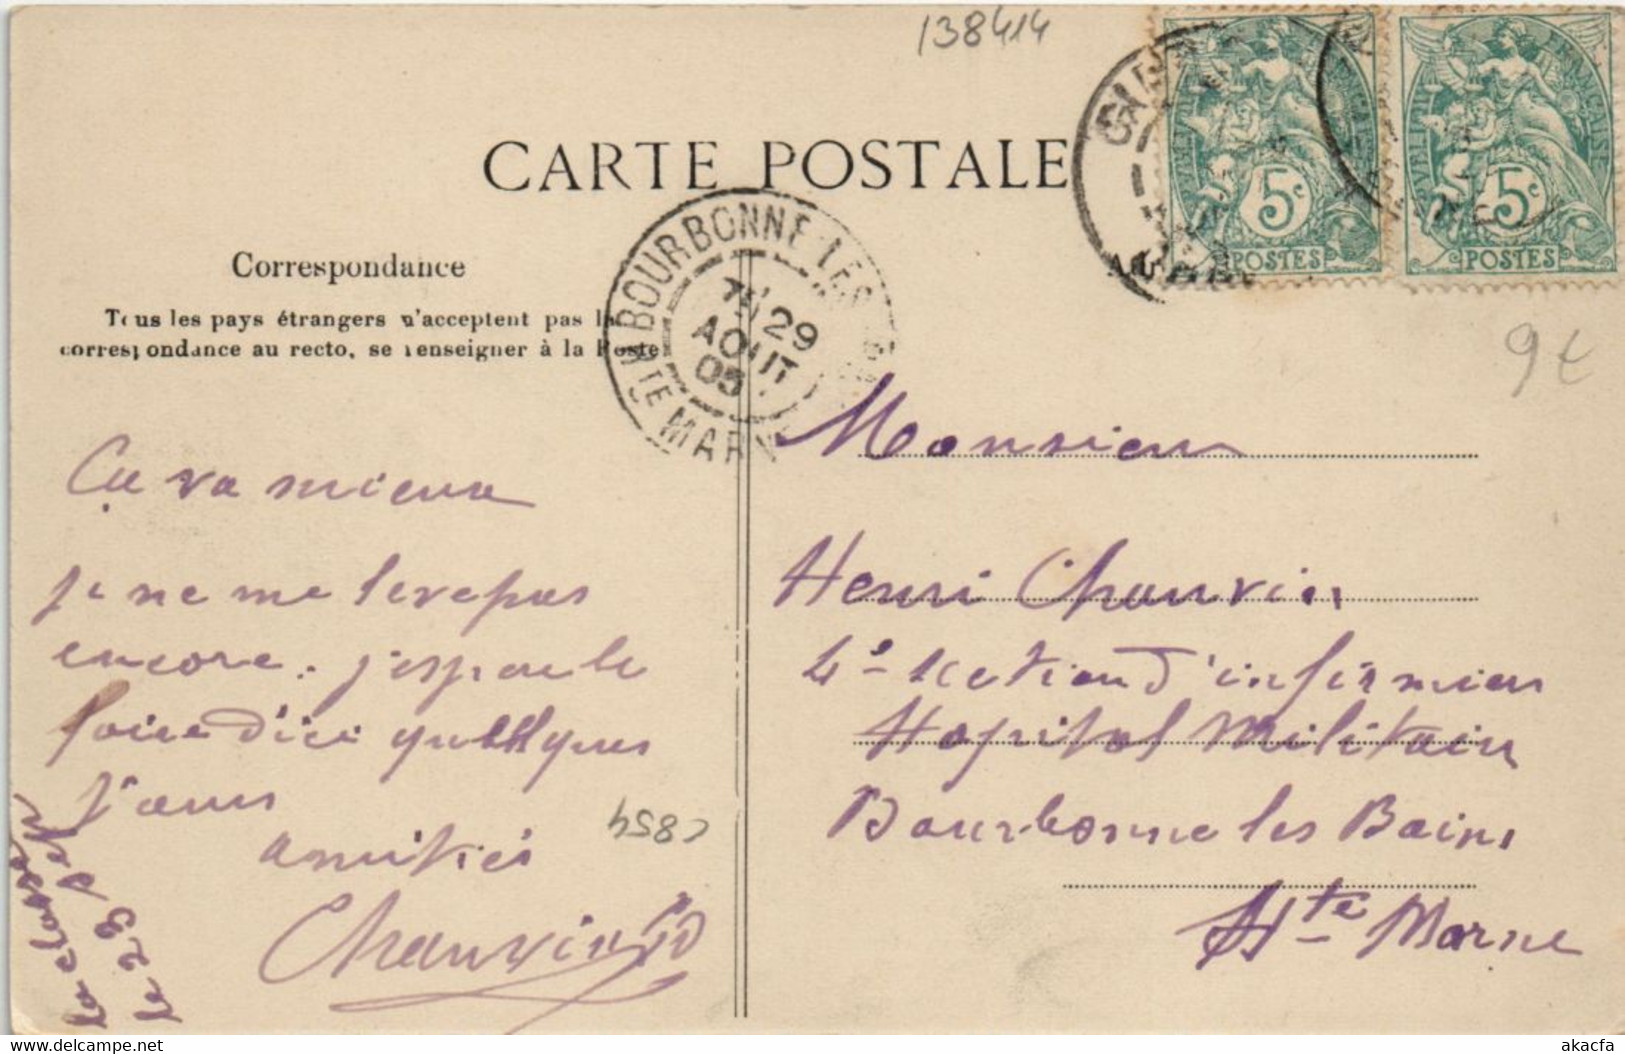 138414
CARTE POSTALE
RÉPUBLIQUE FRANÇAISE
5c
POSTES
5c
POSTES
BOURBONNE-LES-BAINS
7 29
AOUT
05
HTE MARNE
Correspondance
Tous les pays étrangers n'acceptent pas la
correspondance au recto, se renseigner à la Poste
9€
Ça va mieux
je ne me leve pas
encore. j'espere le
faire d'ici quelques
jours
amitiés
Chauvin
la classe
le 23 sept
C854
Monsieur
Henri Chauvin
4e section d'infirmiers
Hopital Militaire
Bourbonne les Bains
Hte Marne
akacfa